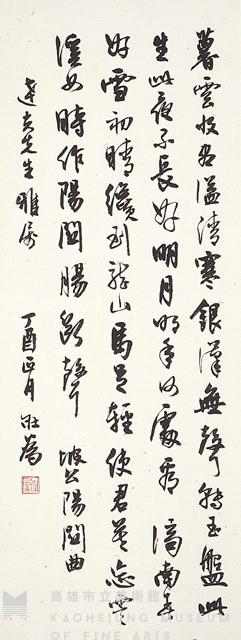 暮雲收盡溢清寒銀漢無聲轉玉盤此
生此夜不長好明月明年何處看 濟南春
好雪初晴纔到龍山馬足輕使君莫忘霅
溪女時作陽關腸斷聲 坡公陽關曲
先生雅屬 丁酉正月 壯為
高雄市立美術館
KAOHSIUNG MUSEUM
OF FINE ARTS